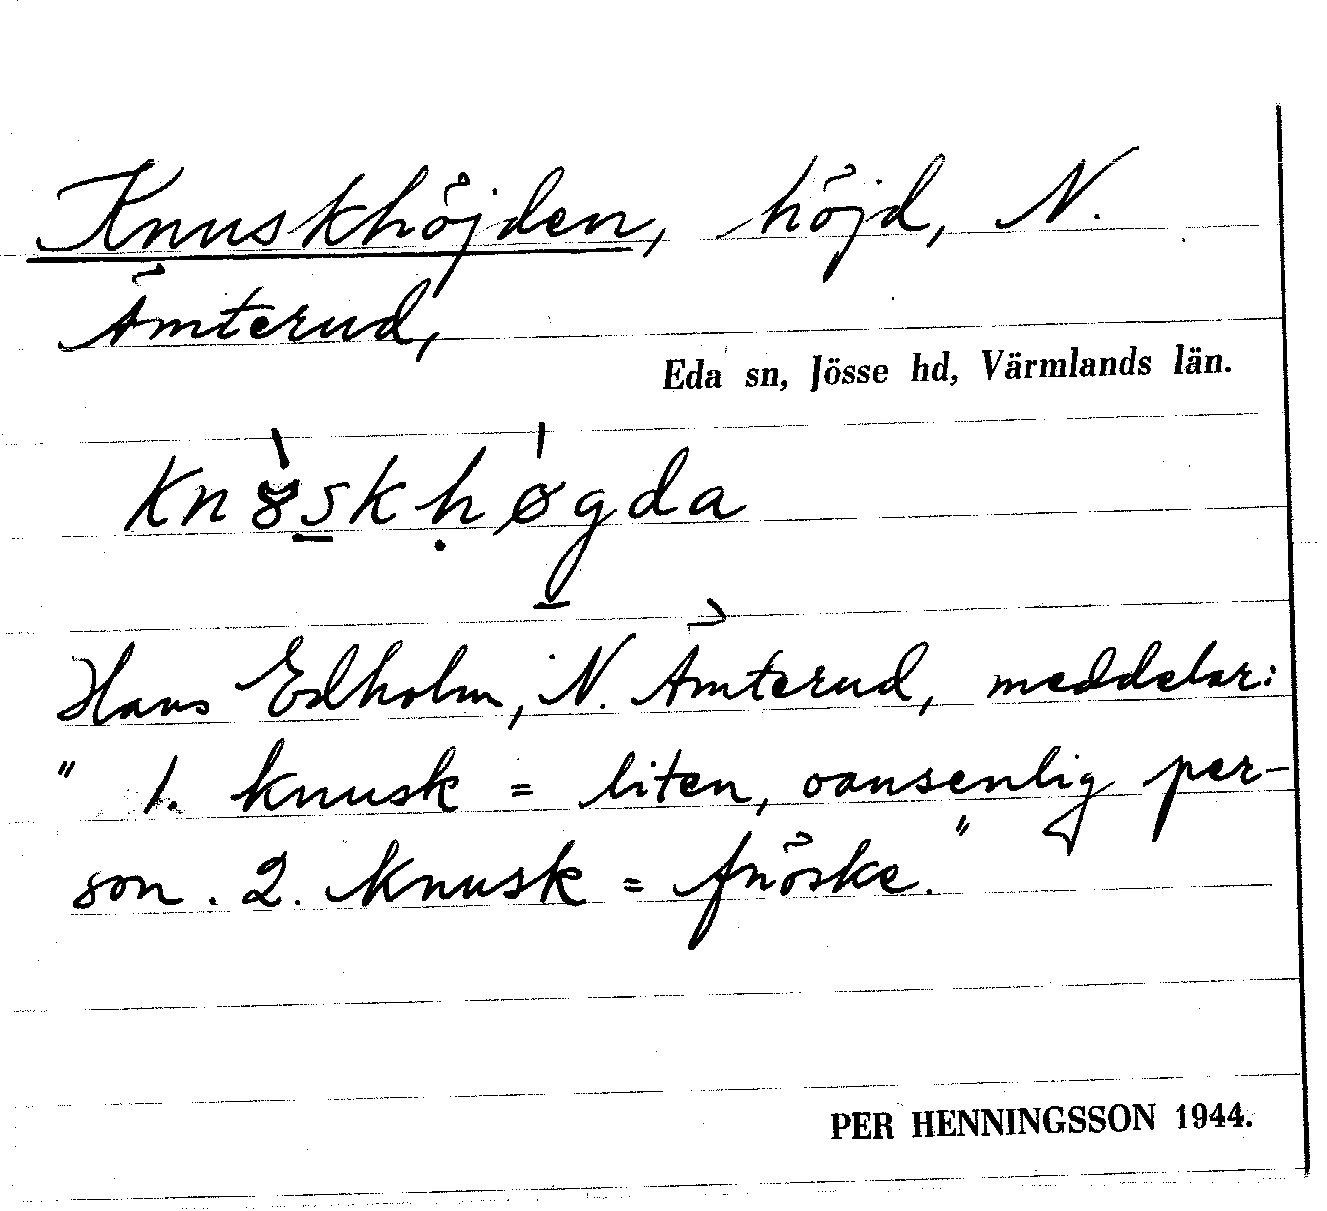 Knuskhöjden, höjd, N.
Ämterud,
Eda sn, Jösse hd, Värmlands län.
Knȣskhøgda
Hans Edholm, N. Ämterud, meddelar:
" 1. knusk = liten, oansenlig per-
son. 2. knusk = fnöske."
PER HENNINGSSON 1944.